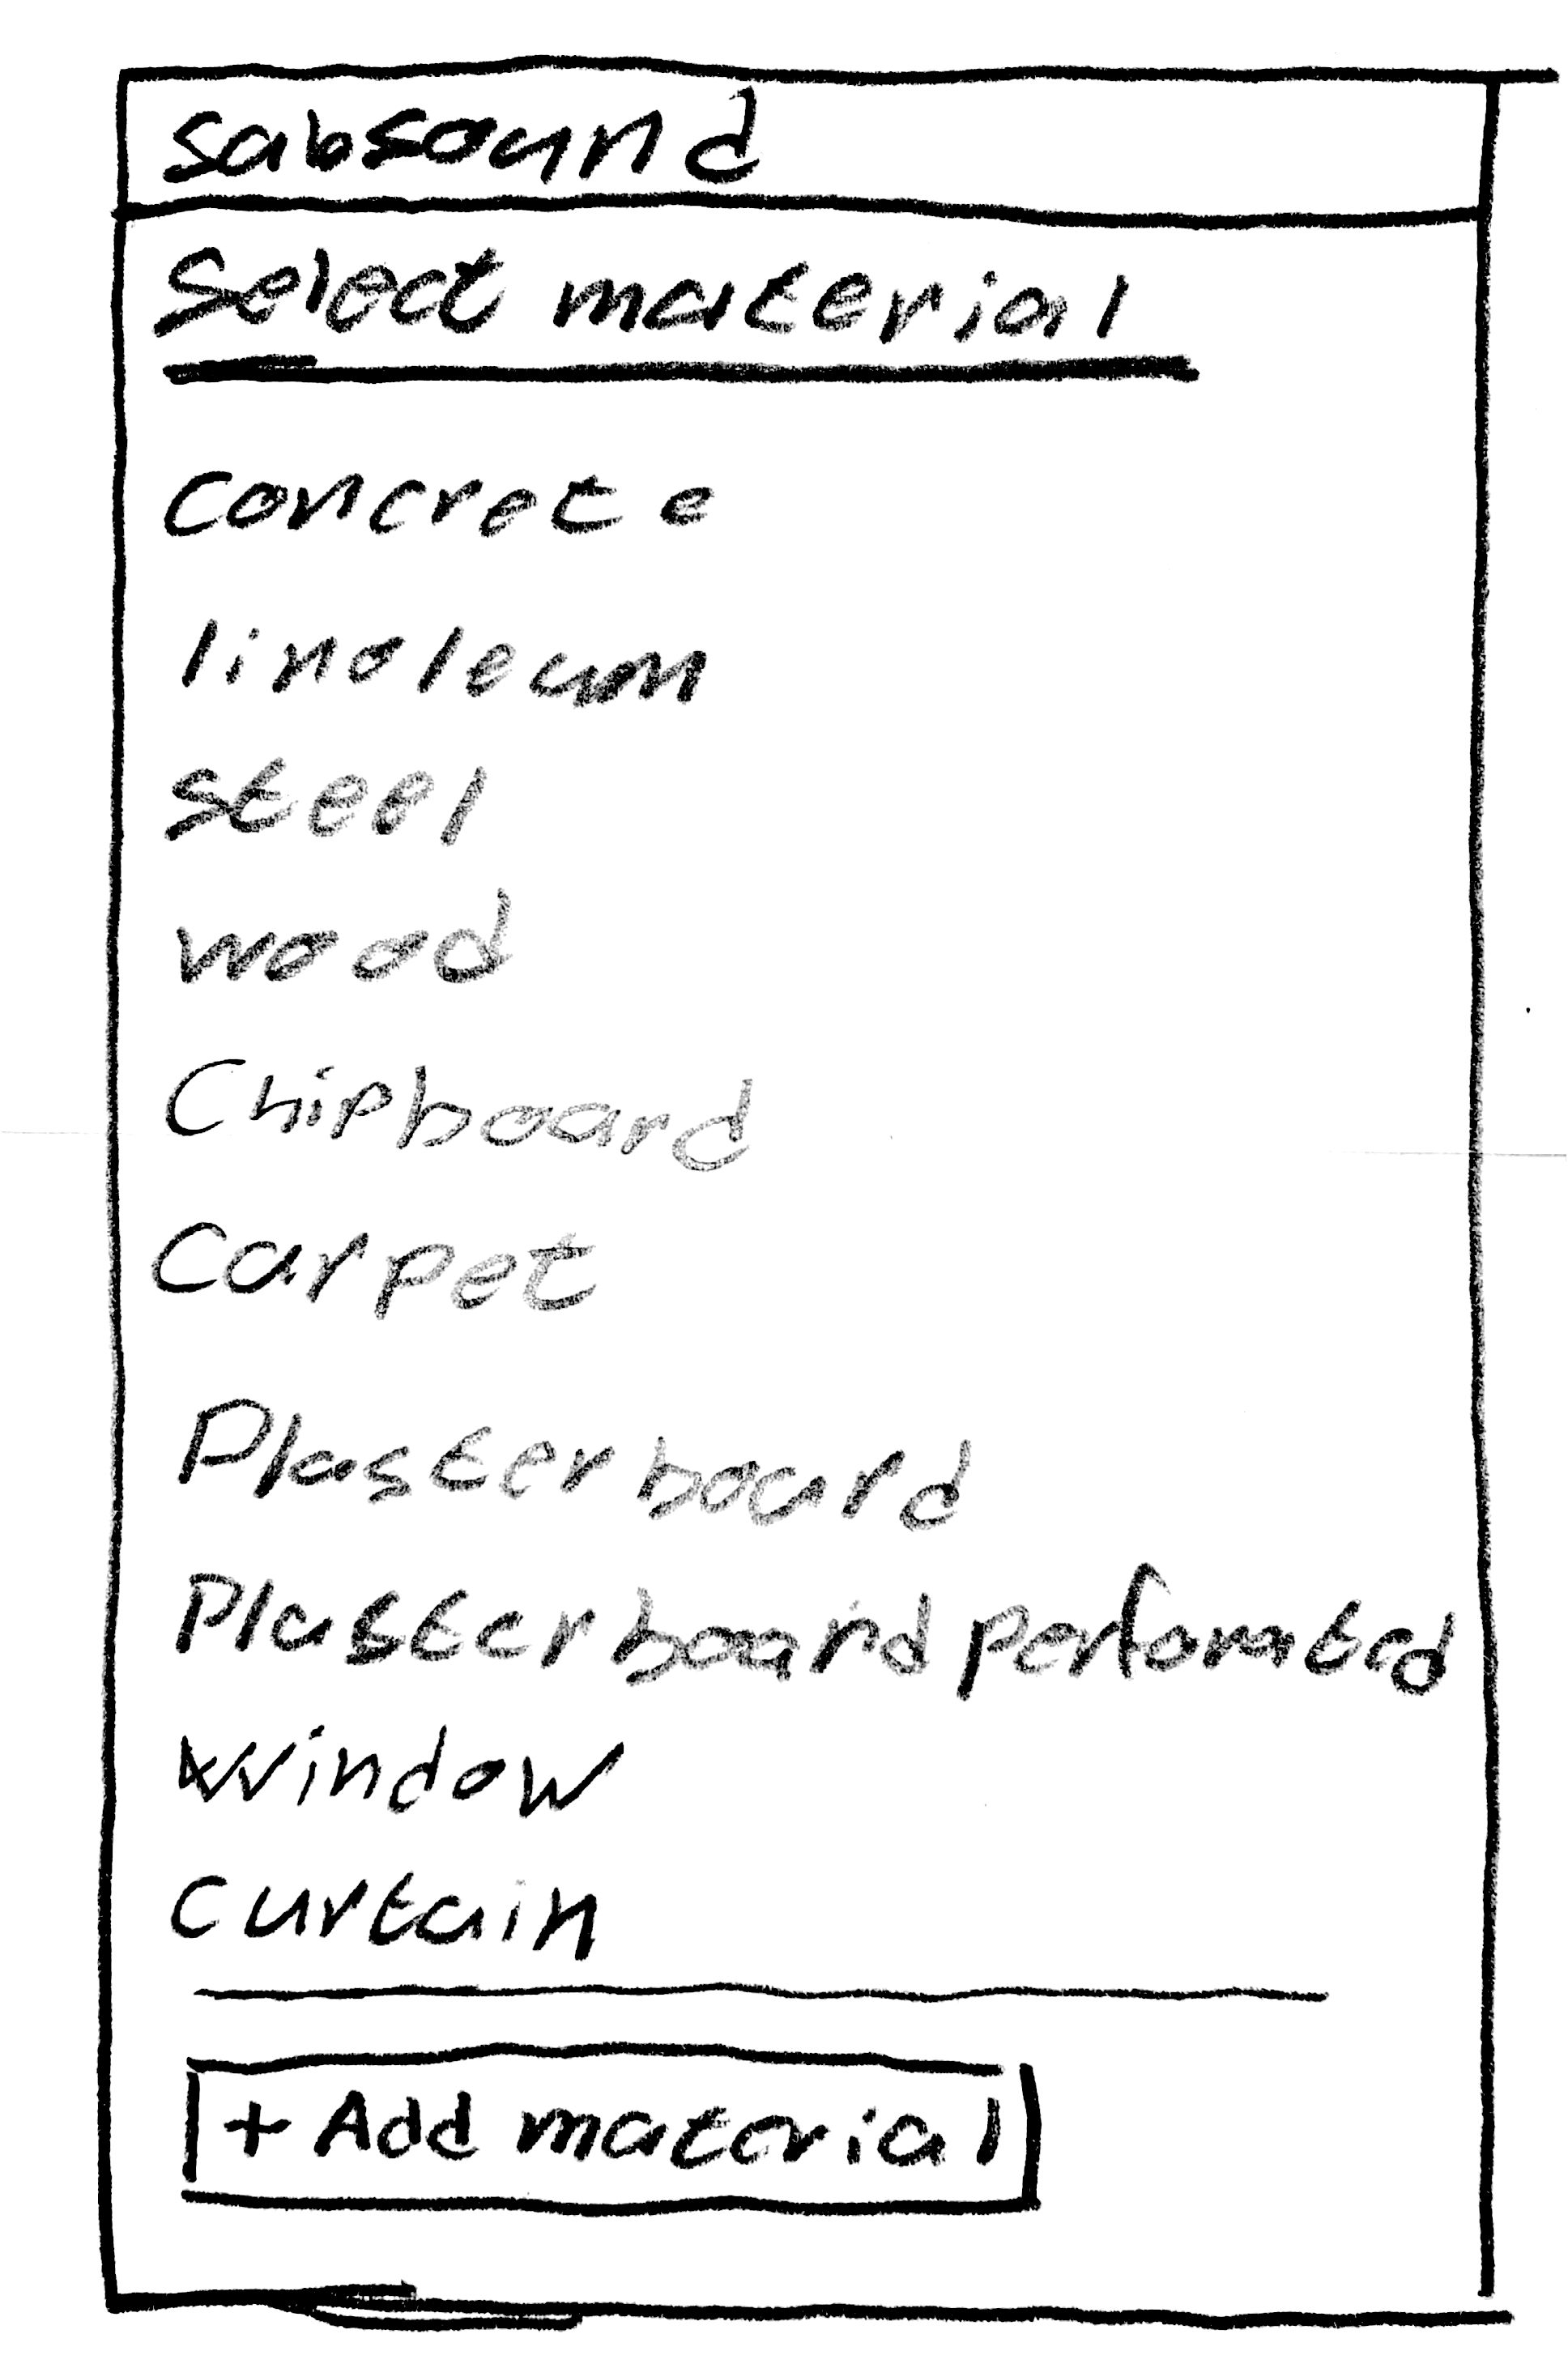 sabsound
Select material
concrete
linoleum
steel
wood
Chipboard
Carpet
Plasterboard
Plasterboard perforated
Window
Curtain
+ Add material